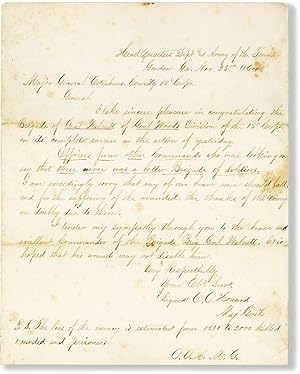 Head Quarters Dept & Army of the Tenn
Gordon Ga. Nov. 23rd 1864
Major General Osterhaus Comdg 15" Corps.
General
I take sincere pleasure in congratulating the
Brigade of Genl Walcutt of Genl Woods Division of the 15" Corps,
on its complete success in the action of yesterday.
Officers from other Commands who were looking on
say that there never was a better Brigade of Soldiers.
I am exceedingly sorry that any of our brave men should fall
and for the suffering of the wounded, the thanks of the Army
are doubly due to them.
I tender my sympathy through you to the brave and
excellent Commander of the Brigade, Brig Genl Walcutt. It is
hoped that his wound may not disable him.
Very Respectfully
Your Obt Servt
Signed O. O. Howard
Maj Genl
P.S. The loss of the enemy is estimated from 1500 to 2000 killed
wounded and prisoners
O. O. H. M. G.